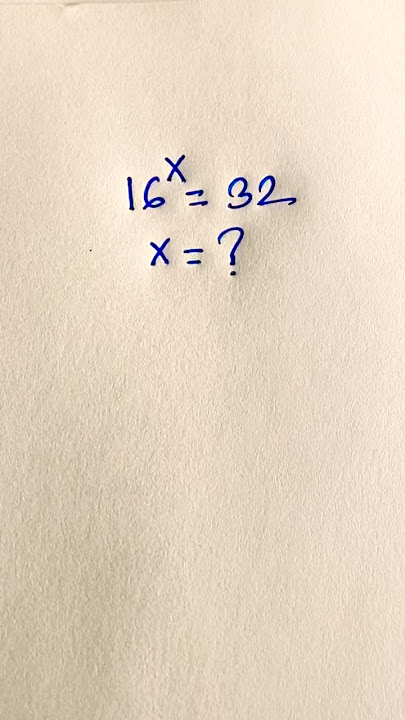 16ˣ = 32
x = ?